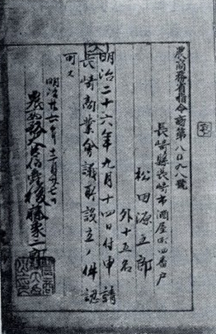 農商務省指令商第八〇九八號
長崎縣長崎市酒屋町四番戸
松田源五郎
外十五名
明治二十六年九月十四日付申請
長崎商業會議所設立ノ件認
可ス
明治廿六年十二月
農商務大臣伯爵後藤象二郎